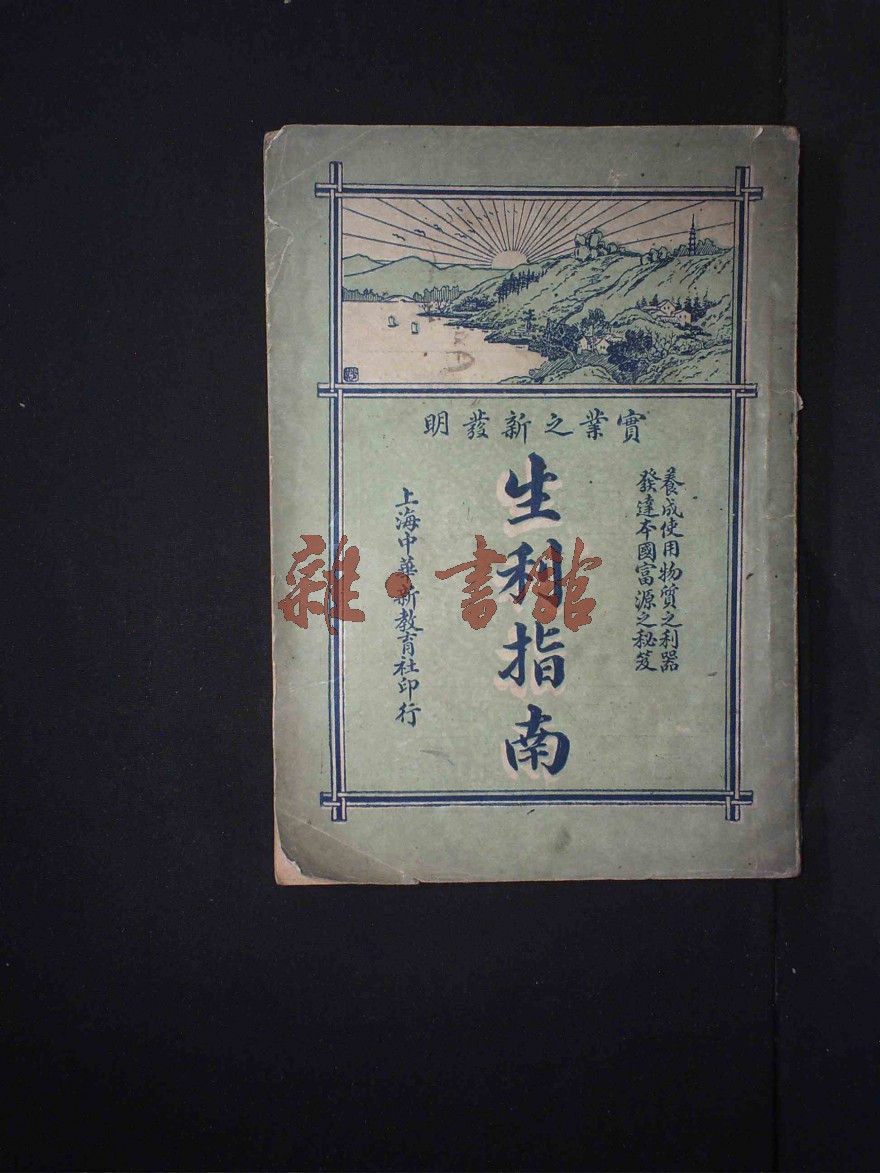 實業之新發明
養成使用物質之利器
發達本國富源之秘笈
生利指南
上海中華新教育社印行
雜·書館